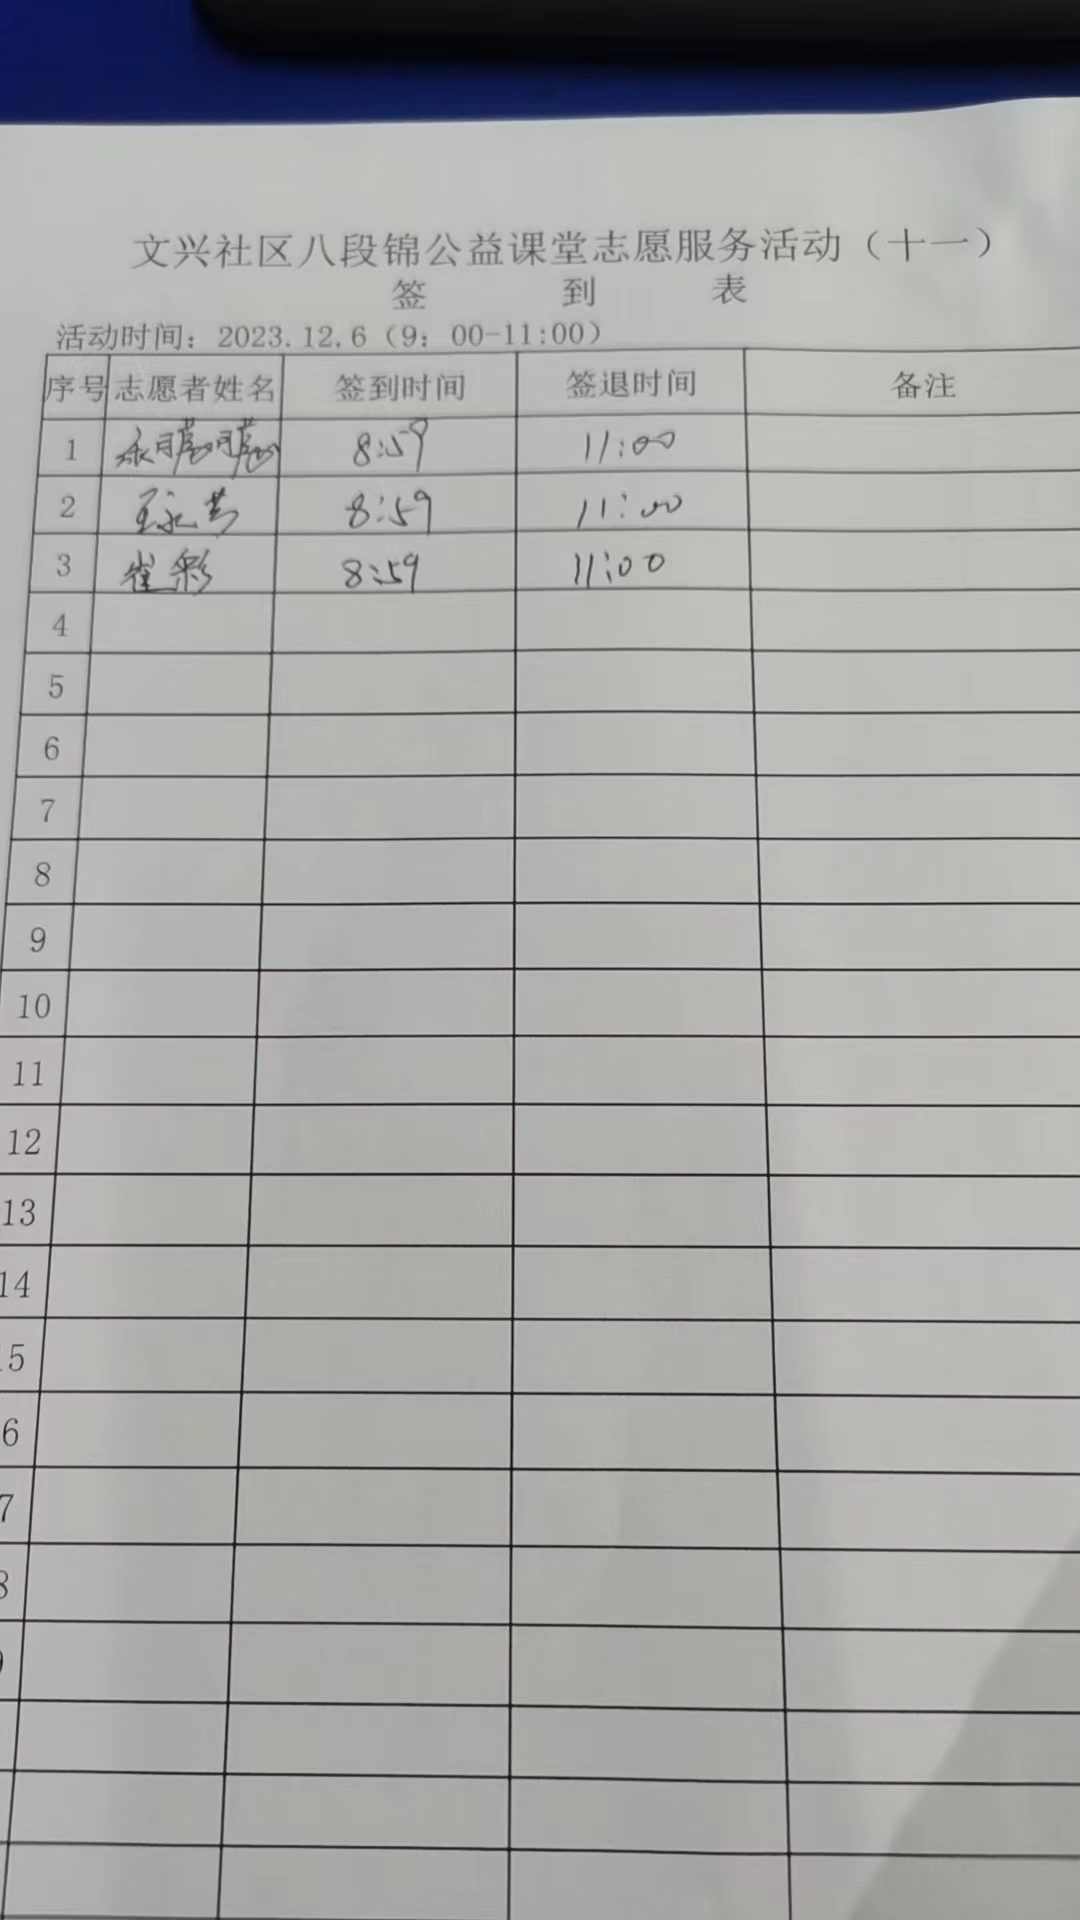 文兴社区八段锦公益课堂志愿服务活动（十一）
签 到 表
活动时间：2023.12.6（9：00-11:00）
序号 志愿者姓名 签到时间 签退时间 备注
1 8:59 11:00
2 王永芳 8:59 11:00
3 崔彩 8:59 11:00
4
5
6
7
8
9
10
11
12
13
14
15
6
7
8
9